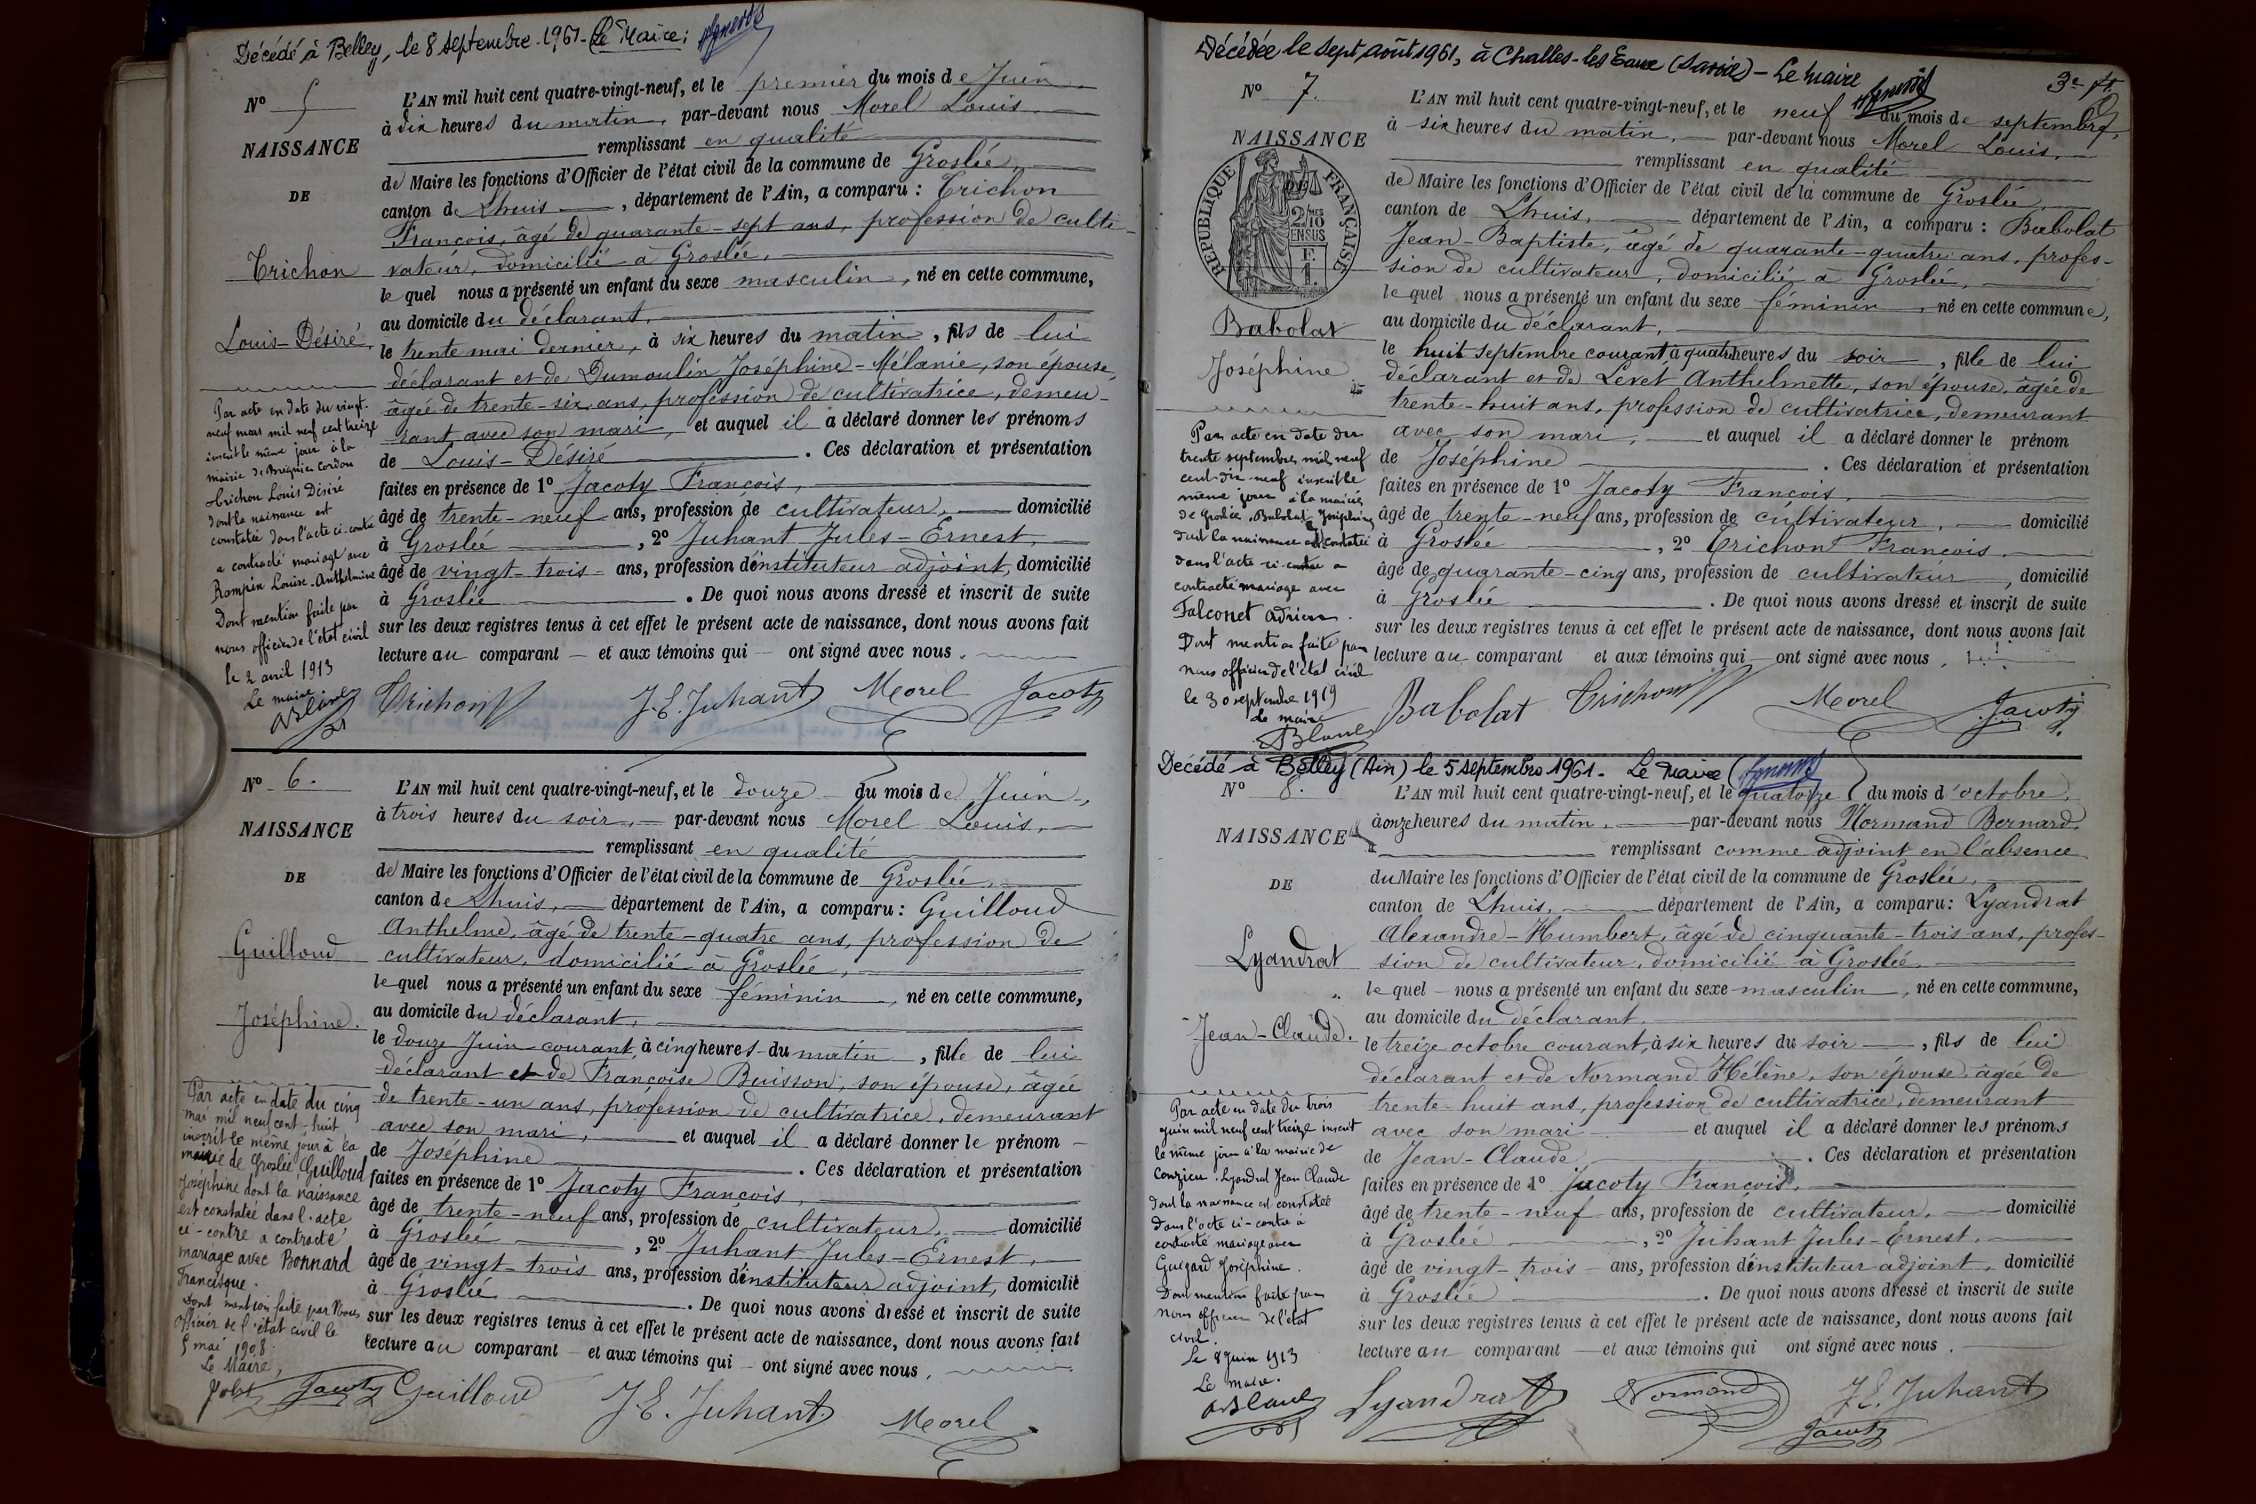 Décédé à Belley, le 8 septembre 1961 - Le Maire :
N° 5
NAISSANCE
DE
Trichon
Louis-Désiré.
L'AN mil huit cent quatre-vingt-neuf, et le premier du mois de Juin
à dix heures du matin, par-devant nous Morel Louis
remplissant en qualité
de Maire les fonctions d'Officier de l'état civil de la commune de Groslée,
canton de Lhuis, département de l'Ain, a comparu : Trichon
François, âgé de quarante-sept ans, profession de culti-
vateur, domicilié à Groslée,
lequel nous a présenté un enfant du sexe masculin, né en cette commune,
au domicile du déclarant,
le trente mai dernier, à six heures du matin, fils de lui
déclarant et de Dumoulin Joséphine-Mélanie, son épouse,
âgée de trente-six ans, profession de cultivatrice, demeu-
rant avec son mari, et auquel il a déclaré donner les prénoms
de Louis-Désiré. Ces déclaration et présentation
faites en présence de 1° Jacoty François,
âgé de trente-neuf ans, profession de cultivateur, domicilié
à Groslée, 2° Juhant Jules-Ernest,
âgé de vingt-trois ans, profession d'instituteur adjoint, domicilié
à Groslée. De quoi nous avons dressé et inscrit de suite
sur les deux registres tenus à cet effet le présent acte de naissance, dont nous avons fait
lecture au comparant et aux témoins qui ont signé avec nous.
Par acte en date du vingt-
neuf mars mil neuf cent treize
inscrit le même jour à la
mairie de Bregnier Cordon
Trichon Louis Désiré
dont la naissance est
constatée dans l'acte ci-contre
a contracté mariage avec
Rompin Louise-Anthelmine
Dont mention faite par
nous officier de l'état civil
le 2 avril 1913
Le maire
Trichon J. E. Juhant Morel Jacoty
N° 6.
NAISSANCE
DE
Guilloud
Joséphine.
L'AN mil huit cent quatre-vingt-neuf, et le douze du mois de Juin,
à trois heures du soir, par-devant nous Morel Louis,
remplissant en qualité
de Maire les fonctions d'Officier de l'état civil de la commune de Groslée,
canton de Lhuis, département de l'Ain, a comparu : Guilloud
Anthelme, âgé de trente-quatre ans, profession de
cultivateur, domicilié à Groslée,
lequel nous a présenté un enfant du sexe féminin, né en cette commune,
au domicile du déclarant,
le douze Juin courant, à cinq heures du matin, fille de lui
déclarant et de Françoise Buisson, son épouse, âgée
de trente-un ans, profession de cultivatrice, demeurant
avec son mari, et auquel il a déclaré donner le prénom
de Joséphine. Ces déclaration et présentation
faites en présence de 1° Jacoty François,
âgé de trente-neuf ans, profession de cultivateur, domicilié
à Groslée, 2° Juhant Jules-Ernest,
âgé de vingt-trois ans, profession d'instituteur adjoint, domicilié
à Groslée. De quoi nous avons dressé et inscrit de suite
sur les deux registres tenus à cet effet le présent acte de naissance, dont nous avons fait
lecture au comparant et aux témoins qui ont signé avec nous,
Par acte en date du cinq
mai mil neuf cent huit
inscrit le même jour à la
mairie de Groslée Guilloud
Joséphine dont la naissance
est constatée dans l'acte
ci-contre a contracté
mariage avec Bonnard
Francisque.
Dont mention faite par Nous
officier de l'état civil le
5 mai 1908
Le Maire,
Jacoty Guilloud J. E. Juhant Morel
Décédée le sept août 1961, à Challes-les Eaux (Savoie) - Le maire
3e ft.
N° 7.
NAISSANCE
DE
RÉPUBLIQUE FRANÇAISE
2/10 MES
EN SUS
F.
1
Babolat
Joséphine
L'AN mil huit cent quatre-vingt-neuf, et le neuf du mois de septembre,
à six heures du matin, par-devant nous Morel Louis,
remplissant en qualité
de Maire les fonctions d'Officier de l'état civil de la commune de Groslée,
canton de Lhuis, département de l'Ain, a comparu : Babolat
Jean-Baptiste, âgé de quarante-quatre ans, profes-
sion de cultivateur, domicilié à Groslée,
lequel nous a présenté un enfant du sexe féminin, né en cette commune,
au domicile du déclarant,
le huit septembre courant, à quatre heures du soir, fille de lui
déclarant et de Levet Anthelmette, son épouse, âgée de
trente-huit ans, profession de cultivatrice, demeurant
avec son mari, et auquel il a déclaré donner le prénom
de Joséphine. Ces déclaration et présentation
faites en présence de 1° Jacoty François,
âgé de trente-neuf ans, profession de cultivateur, domicilié
à Groslée, 2° Trichon François,
âgé de quarante-cinq ans, profession de cultivateur, domicilié
à Groslée. De quoi nous avons dressé et inscrit de suite
sur les deux registres tenus à cet effet le présent acte de naissance, dont nous avons fait
lecture au comparant et aux témoins qui ont signé avec nous,
Par acte en date du
trente septembre mil neuf
cent dix-neuf inscrit le
même jour à la mairie
de Groslée, Babolat Joséphine
dont la naissance est constatée
dans l'acte ci-contre a
contracté mariage avec
Falconet Adrien.
Dont mention faite par
nous officier de l'état civil
le 30 septembre 1919
Le maire
Babolat Trichon Morel Jacoty
Decédé à Belley (Ain) le 5 septembre 1961 - Le Maire
N° 8.
NAISSANCE
DE
Lyandrat
Jean-Claude.
L'AN mil huit cent quatre-vingt-neuf, et le quatorze du mois d'octobre,
à onze heures du matin, par-devant nous Normand Bernard,
remplissant comme adjoint en l'absence
du Maire les fonctions d'Officier de l'état civil de la commune de Groslée,
canton de Lhuis, département de l'Ain, a comparu : Lyandrat
Alexandre-Humbert, âgé de cinquante-trois ans, profes-
sion de cultivateur, domicilié à Groslée
lequel nous a présenté un enfant du sexe masculin, né en cette commune,
au domicile du déclarant
le treize octobre courant, à six heures du soir, fils de lui
déclarant et de Normand Hélène, son épouse, âgée de
trente-huit ans, profession de cultivatrice, demeurant
avec son mari et auquel il a déclaré donner les prénoms
de Jean-Claude. Ces déclaration et présentation
faites en présence de 1° Jacoty François,
âgé de trente-neuf ans, profession de cultivateur, domicilié
à Groslée, 2° Juhant Jules-Ernest,
âgé de vingt-trois ans, profession d'instituteur adjoint, domicilié
à Groslée. De quoi nous avons dressé et inscrit de suite
sur les deux registres tenus à cet effet le présent acte de naissance, dont nous avons fait
lecture au comparant et aux témoins qui ont signé avec nous.
Par acte en date du trois
juin mil neuf cent treize inscrit
le même jour à la mairie de
Conzieu. Lyandrat Jean Claude
dont la naissance est constatée
dans l'acte ci-contre a
contracté mariage avec
Guigard Joséphine.
Dont mention faite par
nous officier de l'état
civil.
Le 8 Juin 1913
Le maire.
Lyandrat Normand J. E. Juhant
Jacoty